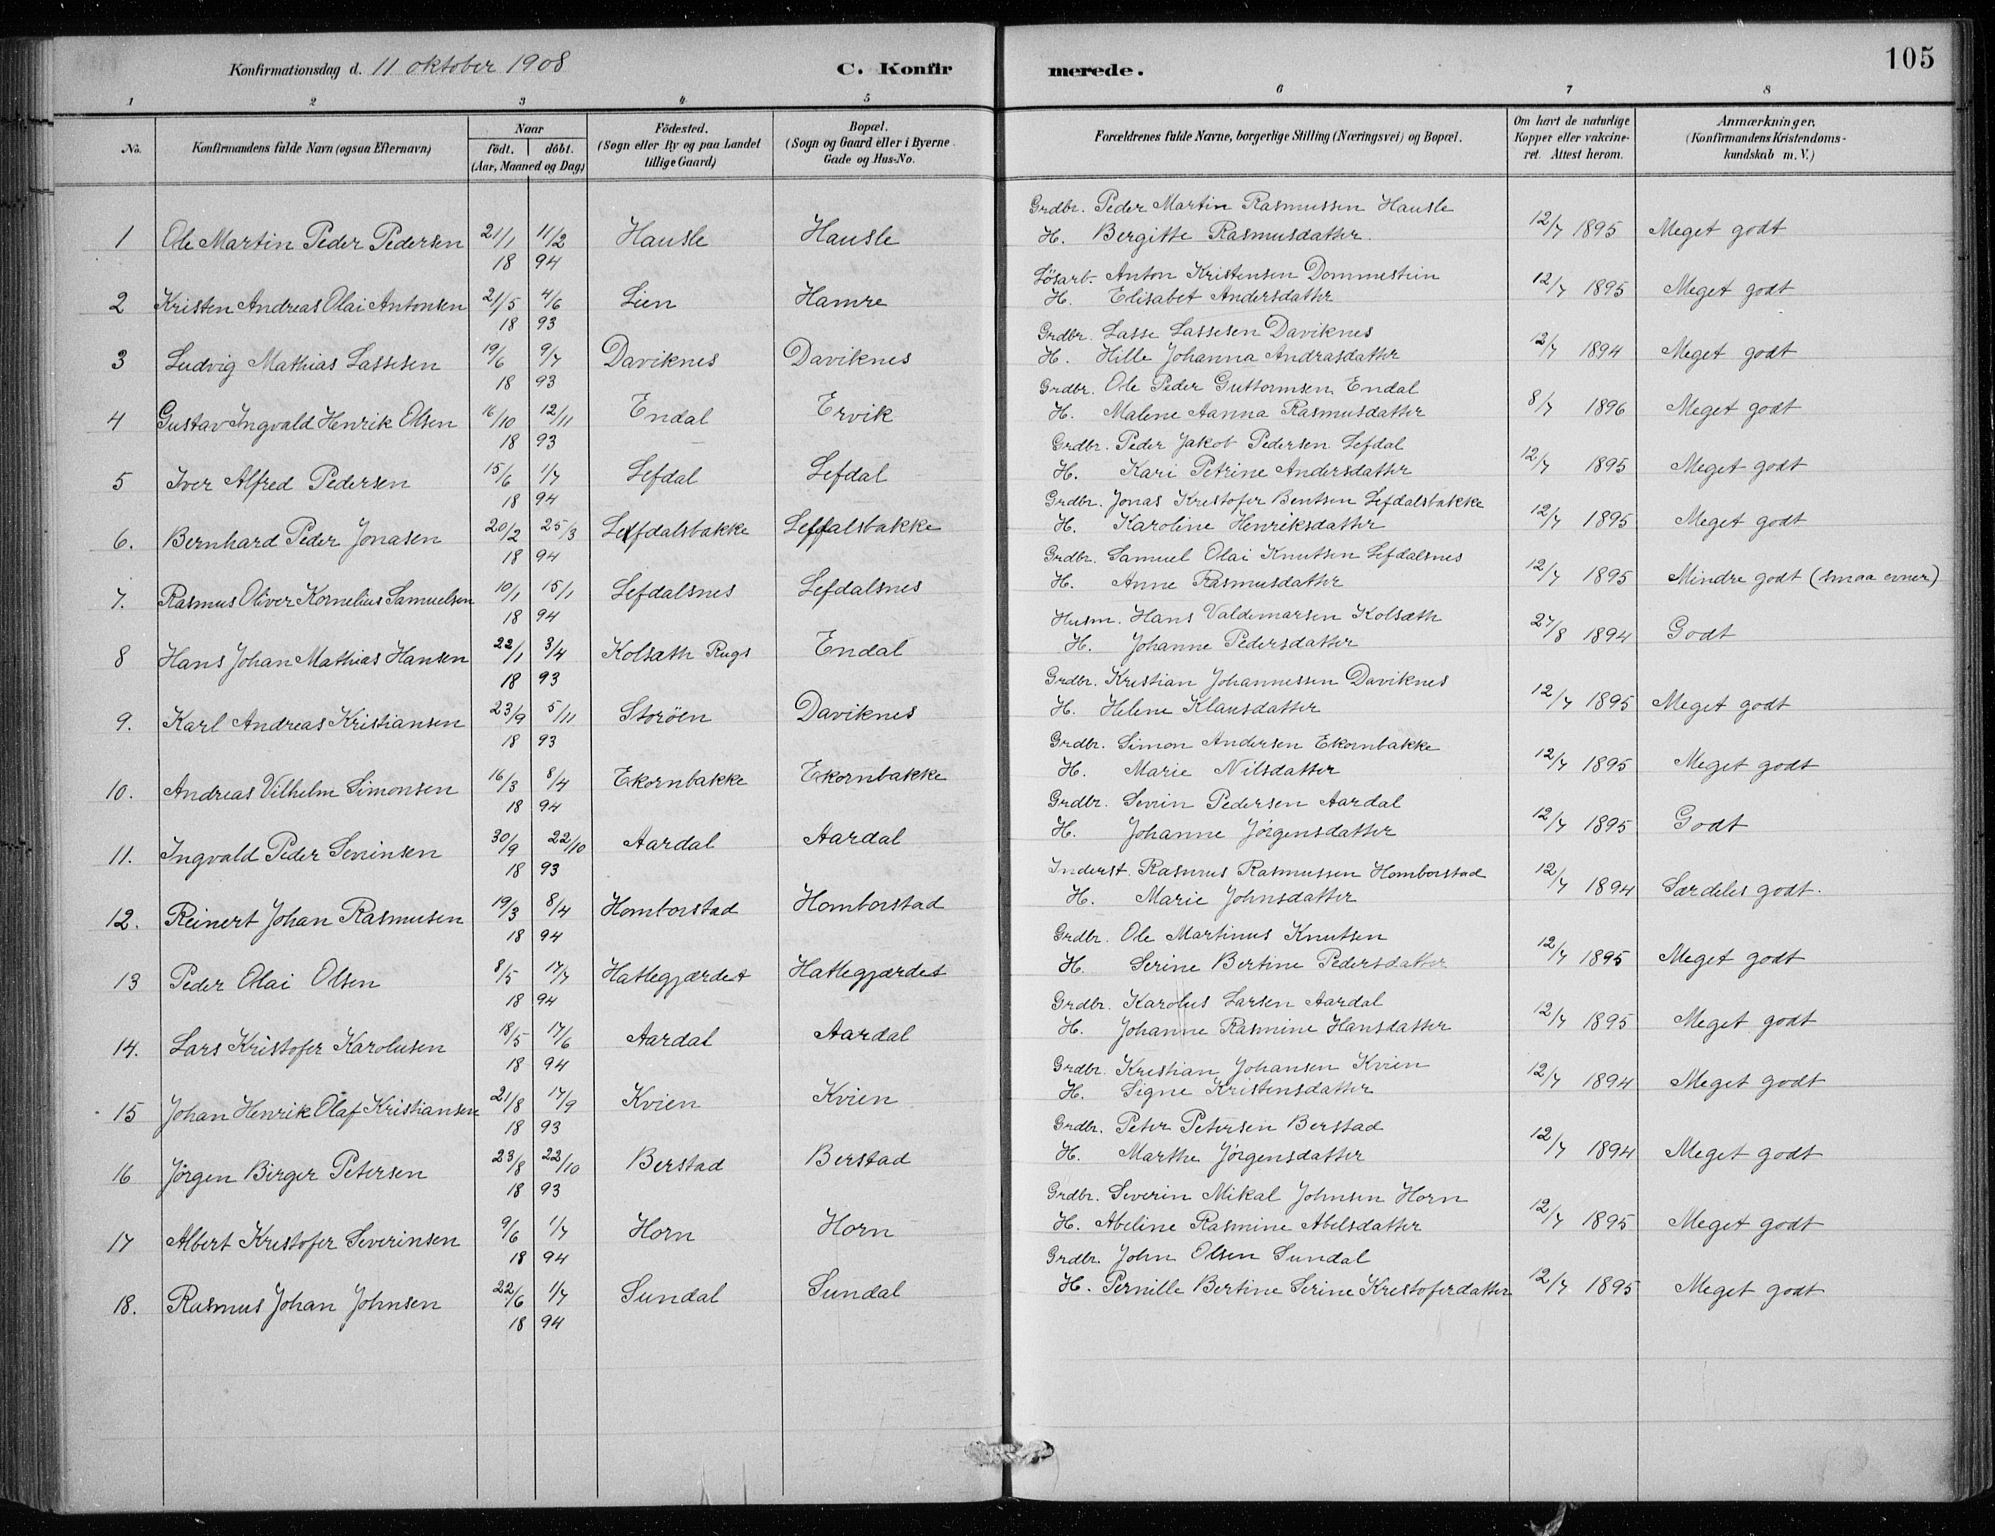 Konfirmationsdag d. 11 oktober 1908 C. Konfirmerede. 105
1 2 3 4 5 6 7 8
No. Konfirmandens fulde Navn (ogsaa Efternavn) Naar födt. döbt. (Aar, Maaned og Dag) Födested. (Sogn eller By og paa Landet tillige Gaard) Bopæl. (Sogn og Gaard eller i Byerne Gade og Hus-No. Forældrenes fulde Navne, borgerlige Stilling (Næringsvei) og Bopæl. Om havt de naturlige Kopper eller vaccineret. Attest herom. Anmærkninger, (Konfirmandens Kristendomskundskab m. V.)
Grdbr. Peder Martin Rasmussen Hausle
1 Ole Martin Peder Pedersen 21/1 11/2 Hausle Hausle H. Bergitte Rasmusdatter. 12/7 1895 Meget godt
18 94
Lösarb. Anton Kristensen Dommestein
2 Kristen Andreas Olai Antonsen 21/5 4/6 Lien Hamre H. Elisabet Andersdatter 12/7 1895 Meget godt
18 93
Grdbr. Lasse Lassesen Daviknes
3 Ludvig Mathias Lassesen 19/6 9/7 Daviknes Daviknes H. Hille Johanna Andrasdatter 12/7 1894 Meget godt
18 93
Grdbr. Ole Peder Guttormsen Endal
4 Gustav Ingvald Henrik Olsen 16/10 12/11 Endal Ervik H. Malene Aanna Rasmusdatter 8/7 1896 Meget godt
18 93
Grdbr. Peder Jakob Pedersen Lefdal
5 Iver Alfred Pedersen 15/6 1/7 Lefdal Lefdal H. Kari Petrine Andersdatter 12/7 1895 Meget godt
18 94
Grdbr. Jonas Kristofer Bentsen Lefdalsbakke
6. Bernhard Peder Jonasen 20/2 25/3 Lefdalsbakke Lefdalsbakke H. Karoline Henriksdatter 12/7 1895 Meget godt
18 94
Grdbr. Samuel Olai Knutsen Lefdalsnes
7. Rasmus Oliver Kornelius Samuelsen 10/1 15/1 Lefdalsnes Lefdalsnes H. Anne Rasmusdatter 12/7 1895 Mindre godt (smaa evner)
18 94
Husm. Hans Valdemarsen Kolsæth
8 Hans Johan Mathias Hansen 22/1 3/4 Kolsæth Rugs Endal H. Johanne Pedersdatter 27/8 1894 Godt
18 93
Grdbr. Kristian Johannessen Daviknes
9. Karl Andreas Kristiansen 23/9 5/11 Storöen Daviknes H. Helene Klausdatter 12/7 1895 Meget godt
18 93
Grdbr. Simon Andersen Ekornbakke
10. Andreas Vilhelm Simonsen 16/3 8/4 Ekornbakke Ekornbakke H. Marie Nilsdatter 12/7 1895 Meget godt
18 94
Grdbr. Sevrin Pedersen Aardal
11. Ingvald Peder Sevrinsen 30/9 22/10 Aardal Aardal H. Johanne Jörgensdatter 12/7 1895 Godt
18 93
Inderst. Rasmus Rasmussen Homborstad
12. Reinert Johan Rasmusen 19/3 8/4 Homborstad Homborstad H. Marie Johnsdatter 12/7 1894 Særdeles godt.
18 94
Grdbr. Ole Martinus Knutsen
13 Peder Olai Olsen 8/5 17/7 Hatlegjærdet Hatlegjærdet H. Serine Bertine Pedersdatter 12/7 1895 Meget godt
18 94
Grdbr. Karolus Larsen Aardal
14. Lars Kristofer Karolusen 18/5 17/6 Aardal Aardal H. Johanne Rasmine Hansdatter 12/7 1895 Meget godt
18 94
Grdbr. Kristian Johansen Kvien
15 Johan Henrik Olaf Kristiansen 21/8 17/9 Kvien Kvien H. Signe Kristensdatter 12/7 1894 Meget godt
18 93
Grdbr. Peter Petersen Berstad
16 Jörgen Birger Petersen 23/8 22/10 Berstad Berstad H. Marthe Jörgensdatter 12/7 1894 Meget godt
18 93
Grdbr. Severin Mikal Johnsen Horn
17 Albert Kristofer Severinsen 9/6 1/7 Horn Horn H. Abeline Rasmine Abelsdatter 12/7 1895 Meget godt
18 94
Grdbr. John Olsen Sundal
18. Rasmus Johan Johnsen 22/6 1/7 Sundal Sundal H. Pernille Bertine Serine Kristoferdatter 12/7 1895 Meget godt
18 94